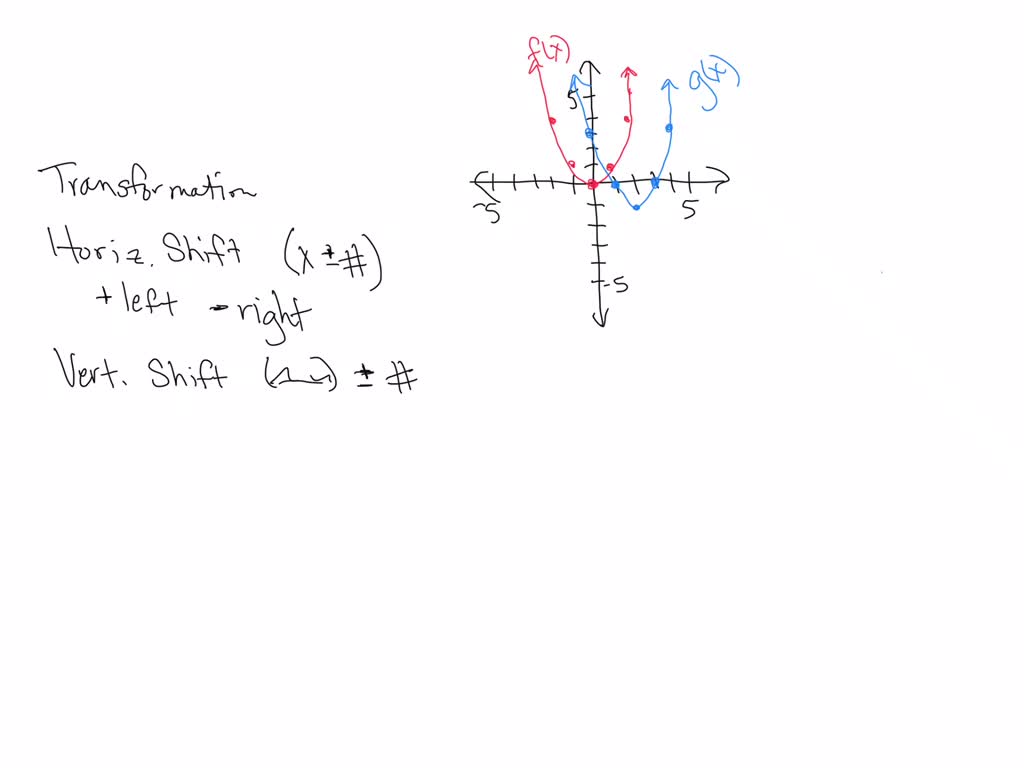 f(x)
g(x)
5
-5
5
-5
Transformation
Horiz. Shift (x ± #)
+ left - right
Vert. Shift ( ) ± #